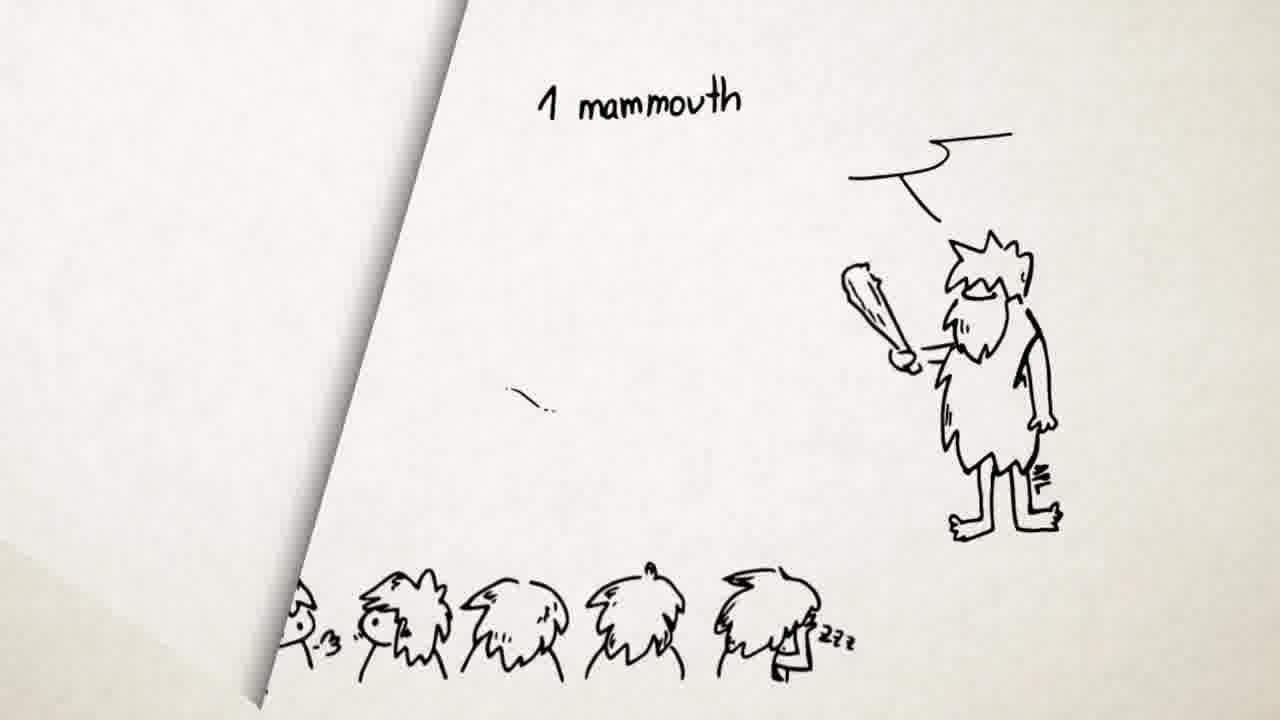 1 mammouth
zzz